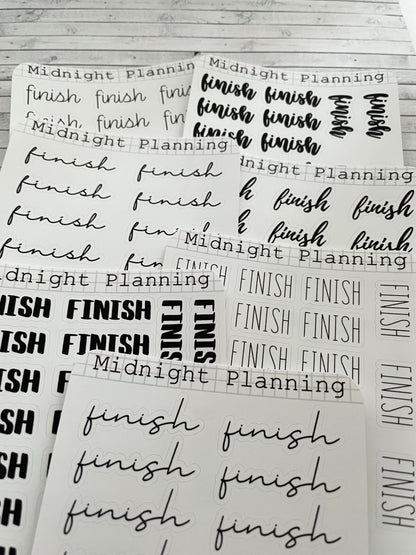 Midnight Planning
finish finish finish
finish finish finish
Midnight Planning
finish finish finish finish
finish finish
finish finish
Midnight Planning
finish finish
finish finish
finish finish
finish fin
Midnight Planning
finish finish
finish finish
Midnight Planning
FINISH FINISH FINISH FINISH
FINISH FINISH
FINISH FINISH
FINISH
Midnight Planning
NISH FINISH FINISH FINIS
ISH FINISH
ISH F
ISH
SH
H
Midnight Planning
finish finish
finish finish
finish finish